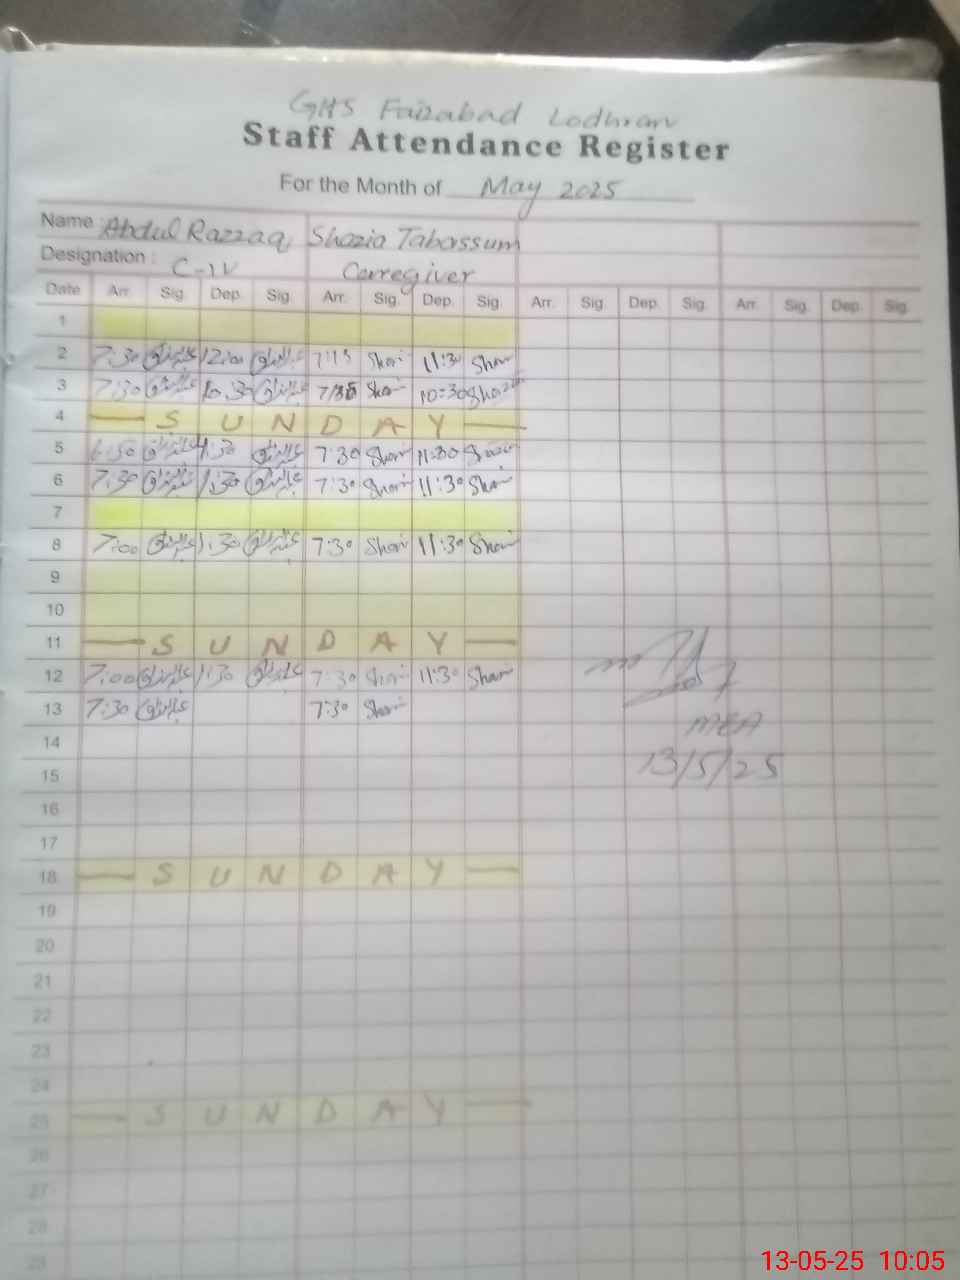 GHS Faizabad Lodhran
Staff Attendance Register
For the Month of May 2025
Name : Abdul Razzaq Shazia Tabassum
Designation : C-IV Caregiver
Date Arr. Sig. Dep. Sig. Arr. Sig. Dep. Sig. Arr. Sig. Dep. Sig. Arr. Sig. Dep. Sig.
1
2 7:30 عبدالرزاق 12:00 عبدالرزاق 7:15 Shazi 11:30 Shazi
3 7:30 عبدالرزاق 10:30 عبدالرزاق Shazi 10:30 Shazia
4 — S U N D A Y —
5 عبدالرزاق 1:30 عبدالرزاق 7:30 Shazi 11:30 Shazia
6 7:30 عبدالرزاق 1:30 عبدالرزاق 7:30 Shazi 11:30 Shazi
7
8 7:00 عبدالرزاق 1:30 عبدالرزاق 7:30 Shazi 11:30 Shazi
9
10
11 — S U N D A Y —
12 7:00 عبدالرزاق 1:30 عبدالرزاق 7:30 Shazi 11:30 Shazi
13 7:30 عبدالرزاق 7:30 Shazi
MEA
14
13/5/25
15
16
17
18 — S U N D A Y —
19
20
21
22
23
24
25 — S U N D A Y —
26
27
28
29
13-05-25 10:05